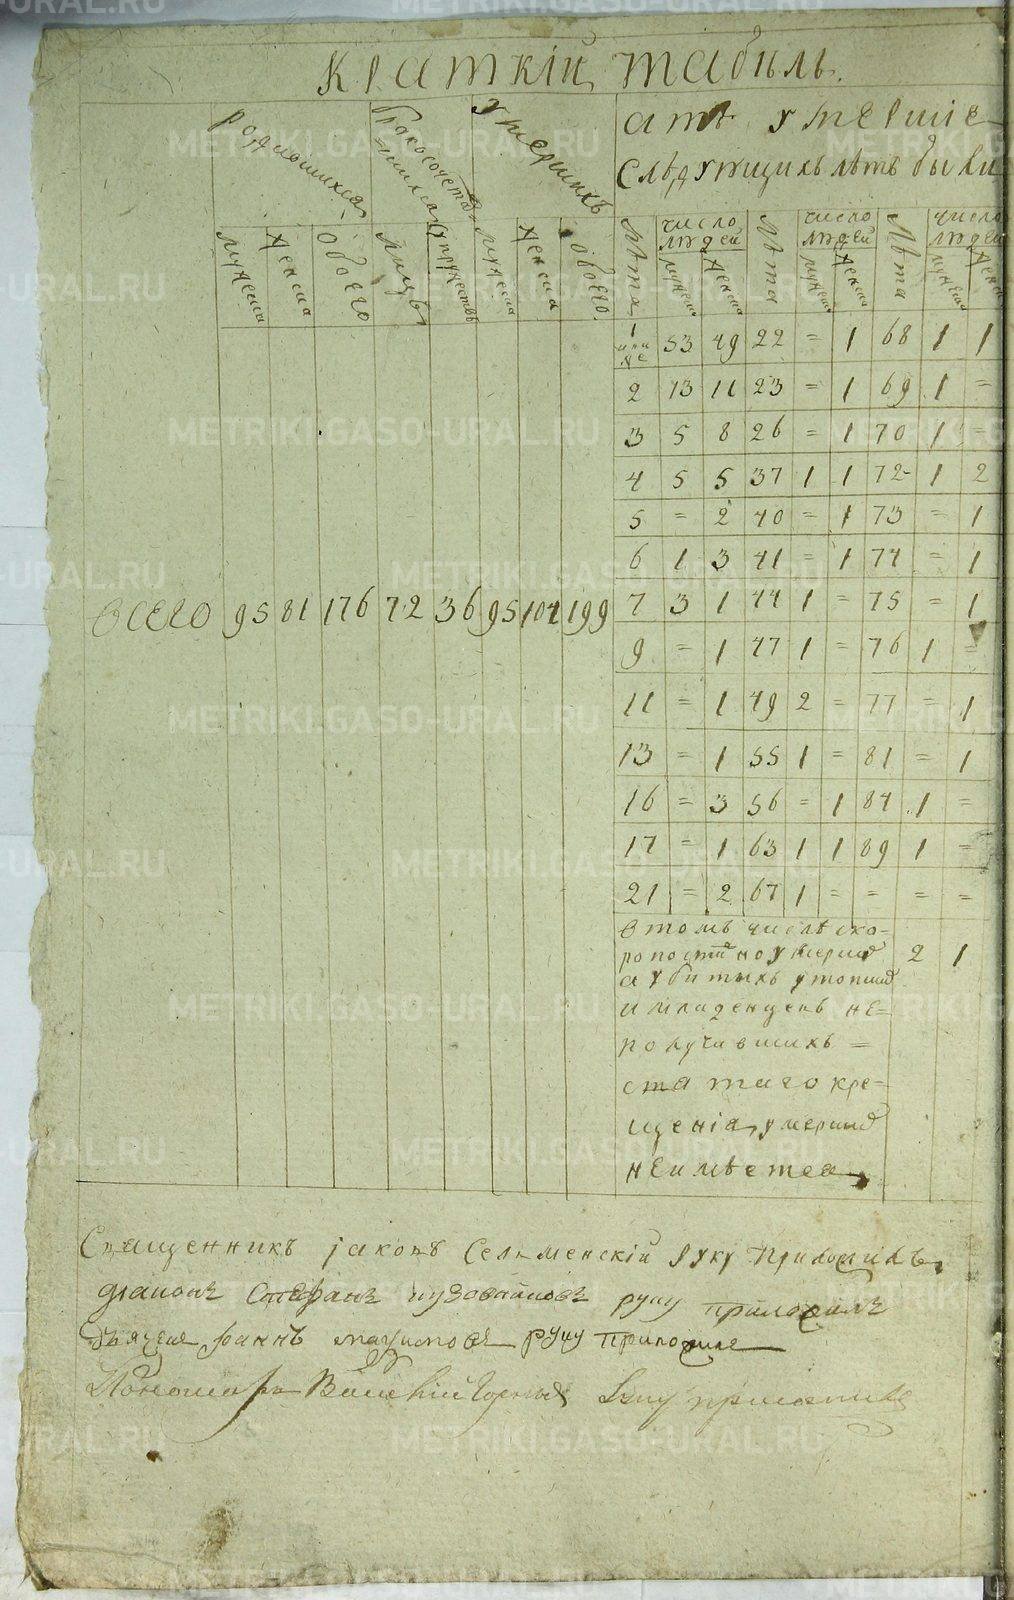 Краткій табель.
Родившихся
Бракосочета=
=шихся
Умершихъ
а тѣ умершіе
слѣдующихъ лѣтъ были
мужеска
женска
обоего
лицъ
супружествъ
мужеска
женска
обоего.
лѣта
число людей
лѣта
число людей
лѣта
число людей
мужеска
женска
мужеска
женска
мужеска
женска
1 или не 53 49 22 = 1 68 1 1
2 13 11 23 = 1 69 1 =
3 5 8 26 = 1 70 1 =
4 5 5 37 1 1 72 1 2
5 = 2 40 = 1 73 = 1
6 1 3 41 = 1 74 = 1
всего 95 81 176 72 36 95 104 199
7 3 1 44 1 = 75 = 1
9 = 1 47 1 = 76 1 =
11 = 1 49 2 = 77 = 1
13 = 1 55 1 = 81 = 1
16 = 3 56 = 1 84 1 =
17 = 1 63 1 1 89 1 =
21 = 2 67 1 = = = =
в томъ числѣ ско-
ропостижно умерших 2 1
а убитыхъ утопших
и младенцевъ не=
получившихъ =
святаго кре-
щенія умерших
неимѣется
Священникъ Іаковъ Селменскій руку приложилъ
діаконъ Стефанъ руку приложилъ
дьячекъ руку приложилъ
Пономарь руку приложилъ
METRIKI.GASO-URAL.RU